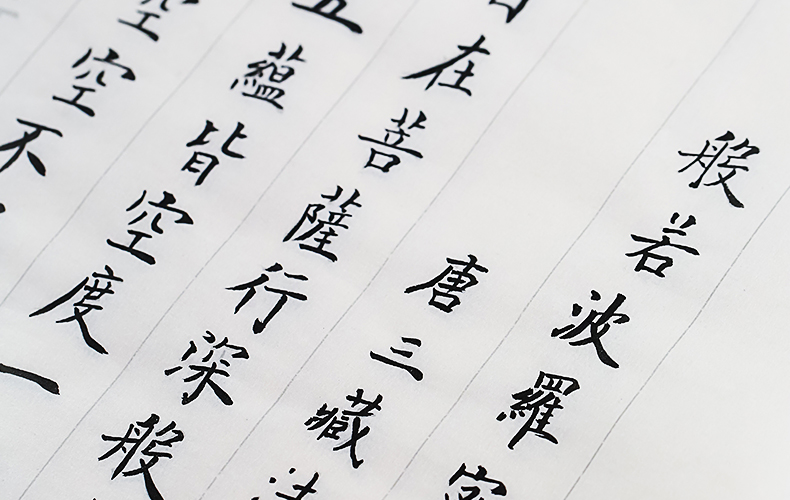 般若波羅
唐三藏法
在菩薩行深般
五蘊皆空度一
空空不